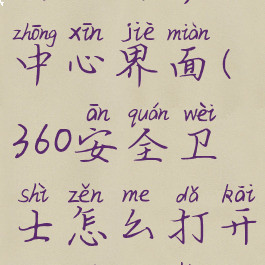 zhōng xīn jiè miàn
中心界面(
ān quán wèi
360安全卫
shì zěn me dǎ kāi
士怎么打开